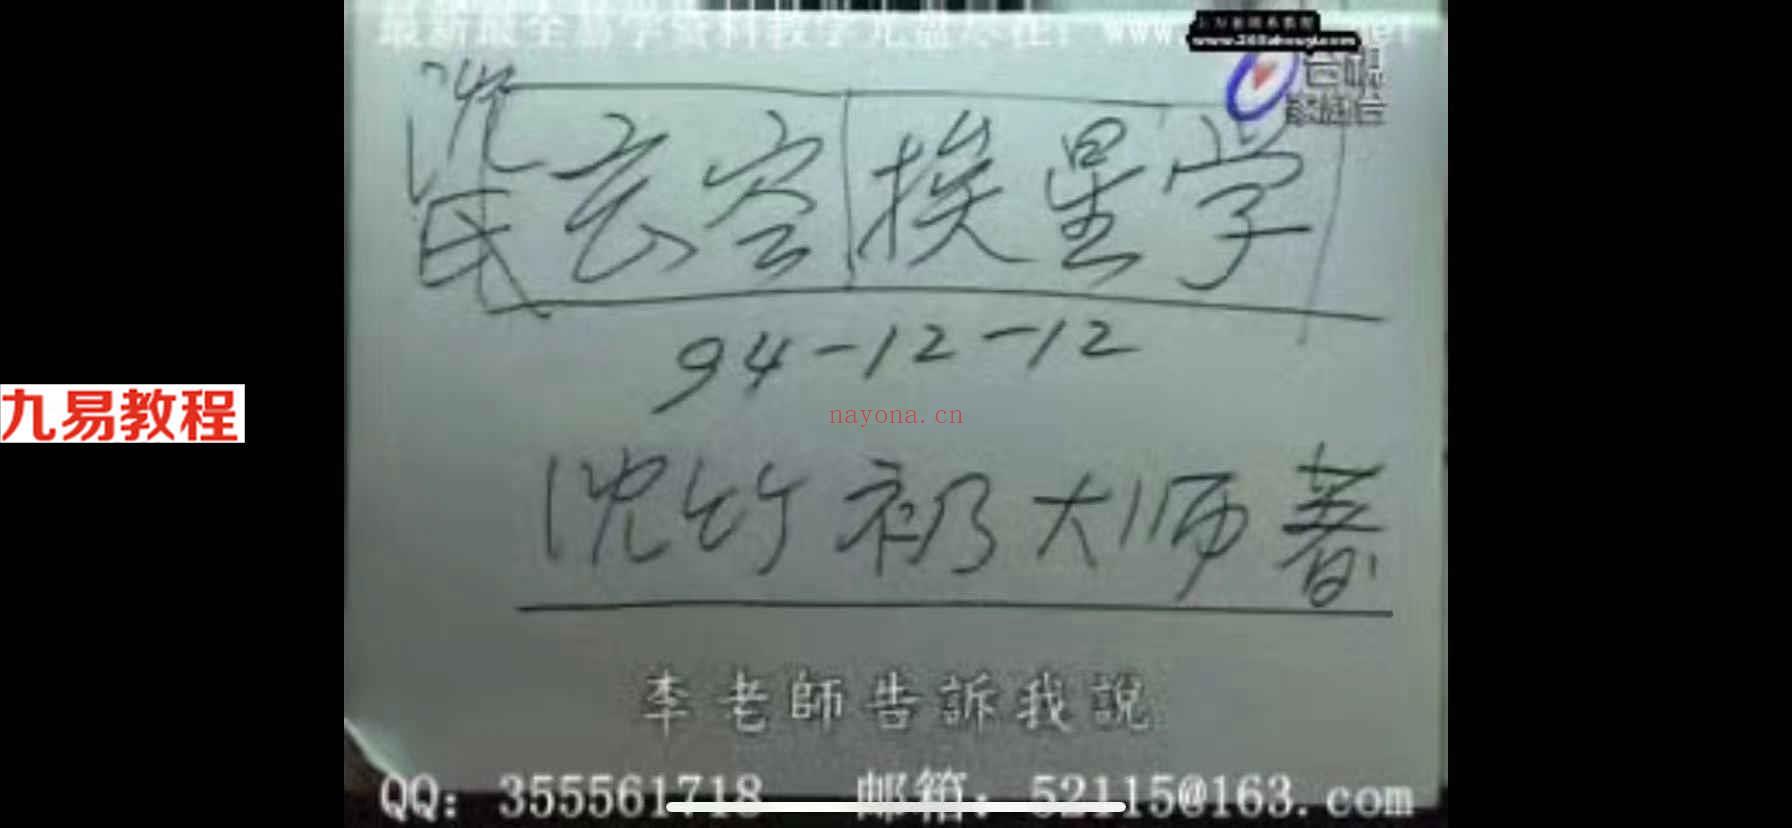 最新最全易学资料教学光盘尽在：www.
沈氏玄空挨星学
94-12-12
九易教程
nayona.cn
沈竹礽大师著
李老師告訴我說
QQ：355561718 邮箱：52115@163.com